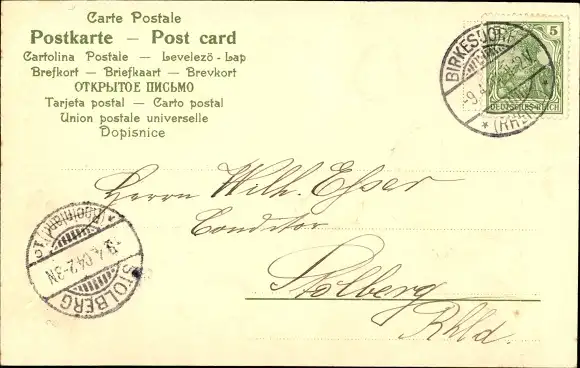 Carte Postale
Postkarte — Post card
Cartolina Postale — Levelező-Lap
Brefkort — Briefkaart — Brevkort
ОТКРЫТОЕ ПИСЬМО
Tarjeta postal — Carto postal
Union postale universelle
Dopisnice
5
DEUTSCHES REICH
BIRKESDORF
(RHEINL.)
Herrn Wilh. Esser
Conditor
Stolberg
Rhld.
STOLBERG
(Rheinland)
-9.4.04.2-3N